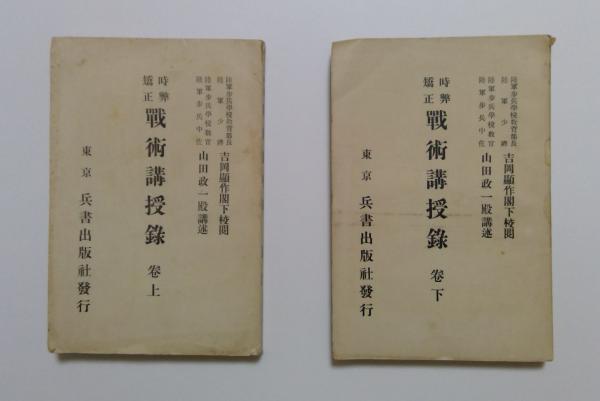 陸軍步兵學校敎育部長
陸軍少將
吉岡顯作閣下校閱
陸軍步兵學校敎官
陸軍步兵中佐
山田政一殿講述
時弊
矯正
戰術講授錄 卷上
東京 兵書出版社發行
陸軍步兵學校敎育部長
陸軍少將
吉岡顯作閣下校閱
陸軍步兵學校敎官
陸軍步兵中佐
山田政一殿講述
時弊
矯正
戰術講授錄 卷下
東京 兵書出版社發行